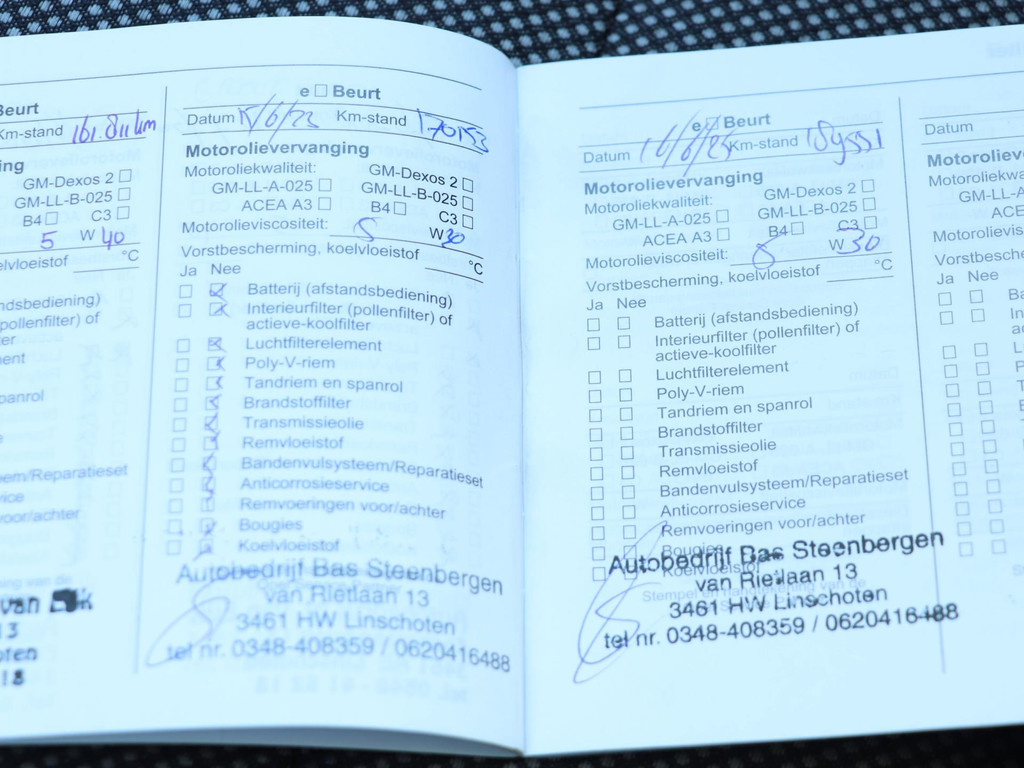 Beurt
Km-stand 161.811 km
GM-Dexos 2
GM-LL-B-025
B4 C3
5 W 40
°C
pollenfilter) of
eem/Reparatieset
voor/achter
van
13
18
e Beurt
Datum 15/6/23 Km-stand 170153
Motorolievervanging
Motoroliekwaliteit: GM-Dexos 2
GM-LL-A-025 GM-LL-B-025
ACEA A3 B4 C3
Motorolieviscositeit: 5 W 30
Vorstbescherming, koelvloeistof °C
Ja Nee
Batterij (afstandsbediening)
Interieurfilter (pollenfilter) of
actieve-koolfilter
Luchtfilterelement
Poly-V-riem
Tandriem en spanrol
Brandstoffilter
Transmissieolie
Remvloeistof
Bandenvulsysteem/Reparatieset
Anticorrosieservice
Remvoeringen voor/achter
Bougies
Koelvloeistof
Autobedrijf Bas Steenbergen
van Rietlaan 13
3461 HW Linschoten
tel nr. 0348-408359 / 0620416488
e Beurt
Datum Km-stand
Motorolievervanging
Motoroliekwaliteit: GM-Dexos 2
GM-LL-A-025 GM-LL-B-025
ACEA A3 B4 C3
Motorolieviscositeit: W 30
Vorstbescherming, koelvloeistof °C
Ja Nee
Batterij (afstandsbediening)
Interieurfilter (pollenfilter) of
actieve-koolfilter
Luchtfilterelement
Poly-V-riem
Tandriem en spanrol
Brandstoffilter
Transmissieolie
Remvloeistof
Bandenvulsysteem/Reparatieset
Anticorrosieservice
Remvoeringen voor/achter
Bougies
Koelvloeistof
Stempel en handtekening van de
Autobedrijf Bas Steenbergen
van Rietlaan 13
3461 HW Linschoten
tel nr. 0348-408359 / 0620416488
Datum
Ja Nee